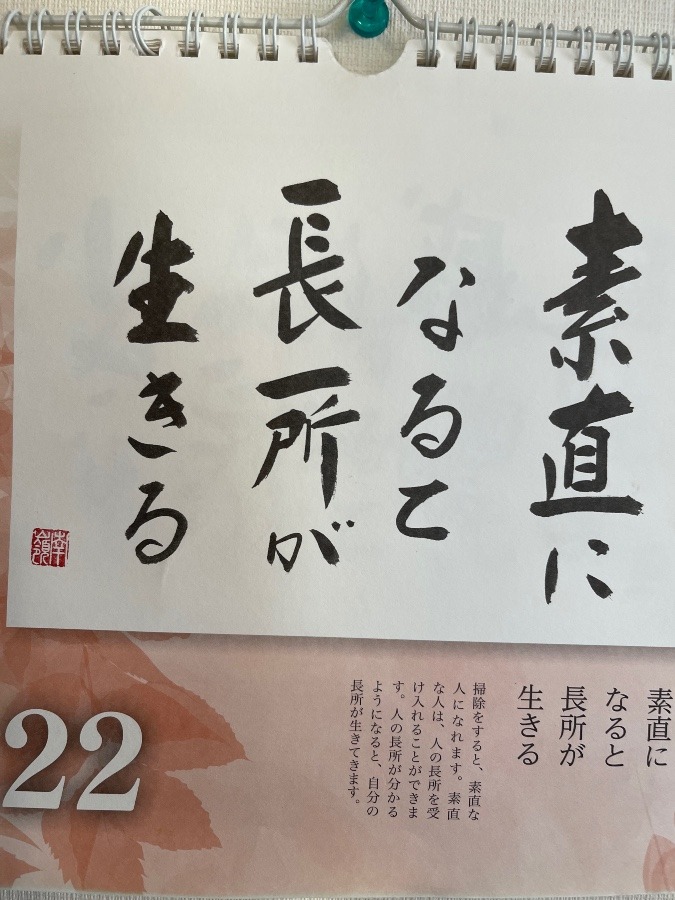 素直に
なると
長所が
生きる
素直に
なると
長所が
生きる
掃除をすると、素直な
人になれます。素直
な人は、人の長所を受
け入れることができま
す。人の長所が分かる
ようになると、自分の
長所が生きてきます。
22